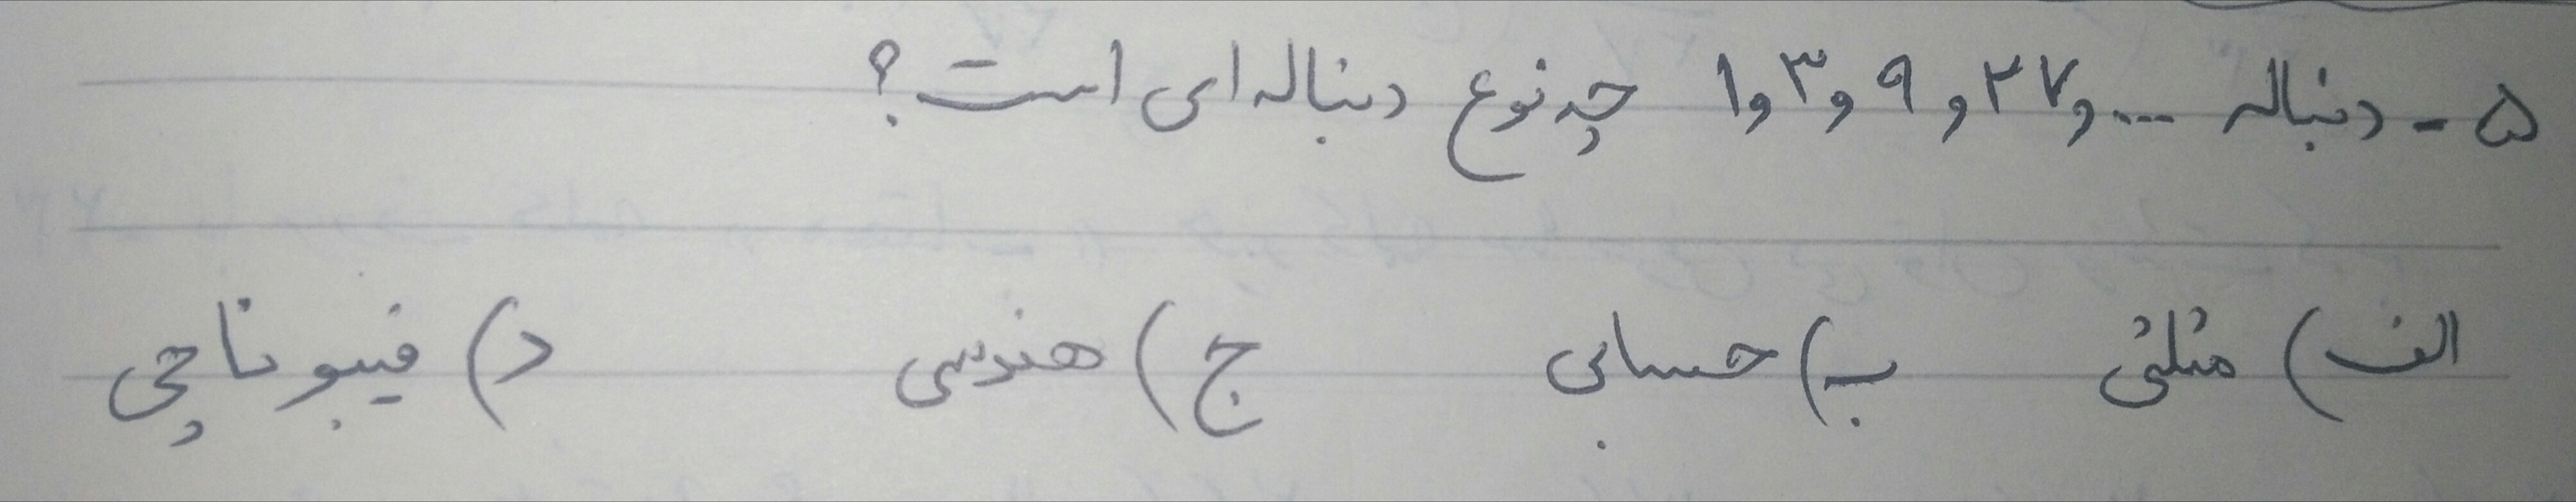 ۵- دنباله ... و ۲۷ و ۹ و ۳ و ۱ چه نوع دنباله ای است؟
الف) مثلثی ب) حسابی ج) هندسی د) فیبوناچی